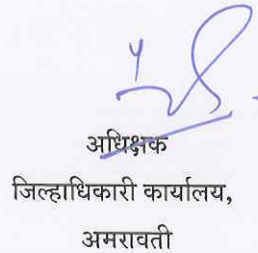 अधिक्षक
जिल्हाधिकारी कार्यालय,
अमरावती